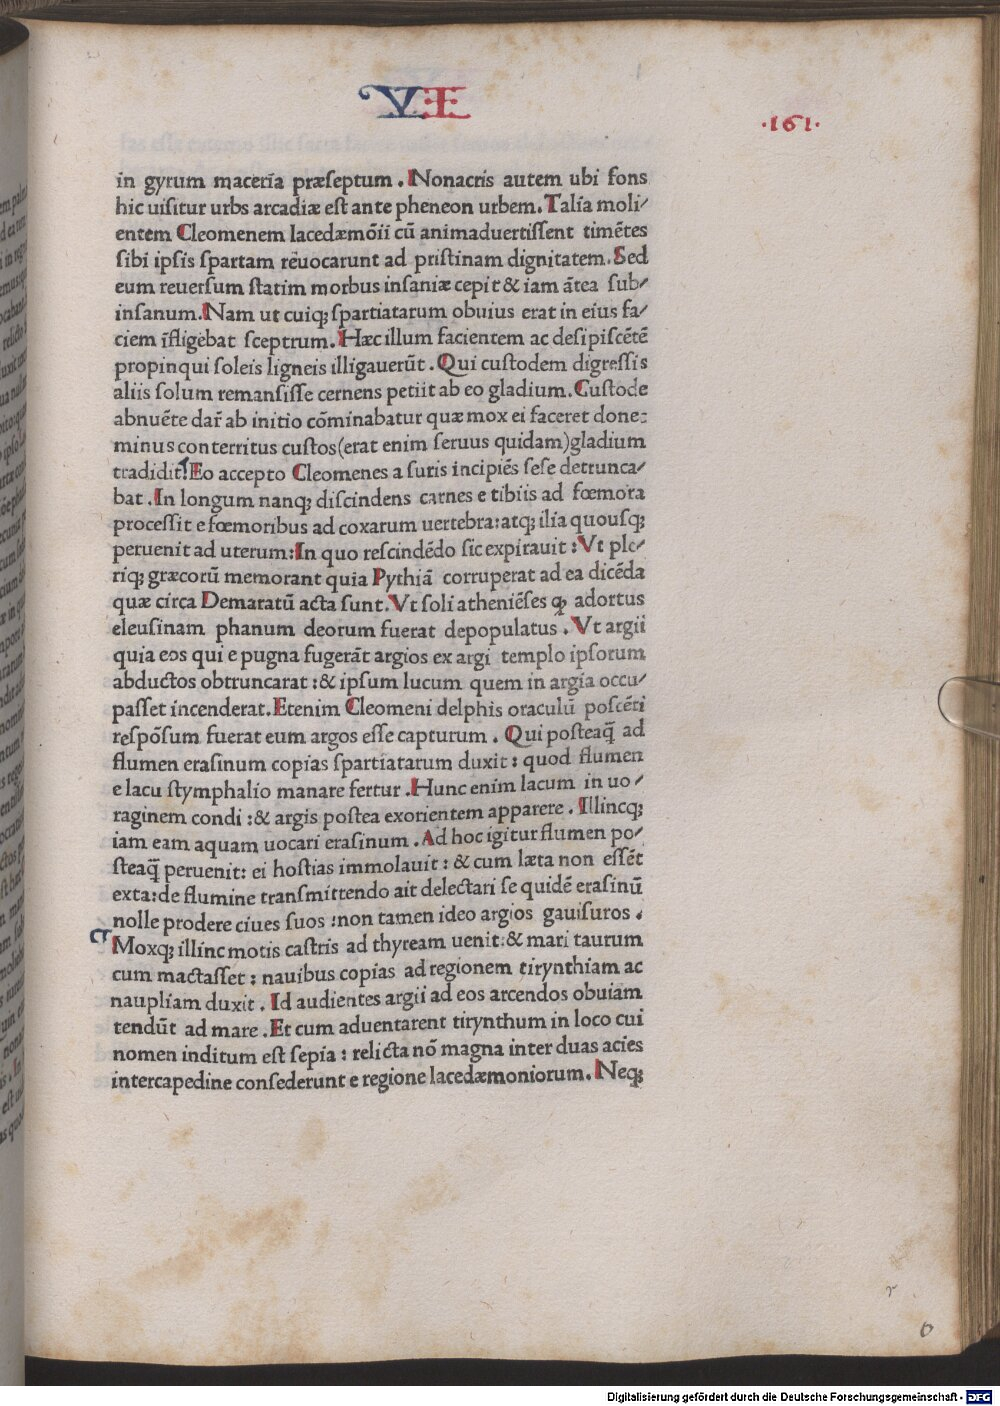 VI
.161.
in gyrum maceria præſeptum . Nonacris autem ubi fons
hic uiſitur urbs arcadiæ eſt ante pheneon urbem. Talia moli⸗
entem Cleomenem lacedæmõii cũ animaduertiſſent timẽtes
ſibi ipſis ſpartam reuocarunt ad priſtinam dignitatem. Sed
eum reuerſum ſtatim morbus inſaniæ cepit & iam ãtea ſub⸗
inſanum. Nam ut cuiqꝫ ſpartiatarum obuius erat in eius fa⸗
ciem ĩfligebat ſceptrum. Hæc illum facientem ac deſipiſcẽtẽ
propinqui ſoleis ligneis illigauerũt. Qui cuſtodem digreſſis
aliis ſolum remanſiſſe cernens petiit ab eo gladium. Cuſtode
abnuẽte dar̃ ab initio cõminabatur quæ mox ei faceret done:
minus conterritus cuſtos(erat enim ſeruus quidam)gladium
tradidit. Eo accepto Cleomenes a ſuris incipiẽs ſeſe detrunca⸗
bat . In longum nanqꝫ diſcindens carnes e tibiis ad fœmora
proceſſit e fœmoribus ad coxarum uertebra: atqꝫ ilia quouſqꝫ
peruenit ad uterum: In quo reſcindẽdo ſic expirauit : Vt ple⸗
riqꝫ græcorũ memorant quia Pythiã corruperat ad ea dicẽda
quæ circa Demaratũ acta ſunt. Vt ſoli atheniẽſes ꝙ adortus
eleuſinam phanum deorum fuerat depopulatus . Vt argii
quia eos qui e pugna fugerãt argios ex argi templo ipſorum
abductos obtruncarat : & ipſum lucum quem in argia occu⸗
paſſet incenderat. Etenim Cleomeni delphis oraculũ poſcẽti
reſpõſum fuerat eum argos eſſe capturum . Qui poſteaq̃ ad
flumen eraſinum copias ſpartiatarum duxit : quod flumen
e lacu ſtymphalio manare fertur . Hunc enim lacum in uo⸗
raginem condi : & argis poſtea exorientem apparere . Illincqꝫ
iam eam aquam uocari eraſinum . Ad hoc igitur flumen po⸗
ſteaq̃ peruenit: ei hoſtias immolauit : & cum læta non eſſẽt
exta: de flumine tranſmittendo ait delectari ſe quidẽ eraſinũ
nolle prodere ciues ſuos : non tamen ideo argios gauiſuros .
Moxqꝫ illinc motis caſtris ad thyream uenit: & mari taurum
cum mactaſſet : nauibus copias ad regionem tirynthiam ac
naupliam duxit . Id audientes argii ad eos arcendos obuiam
tendũt ad mare . Et cum aduentarent tirynthum in loco cui
nomen inditum eſt ſepia : relicta nõ magna inter duas acies
intercapedine conſederunt e regione lacedæmoniorum. Neqꝫ
Digitalisierung gefördert durch die Deutsche Forschungsgemeinschaft - DFG